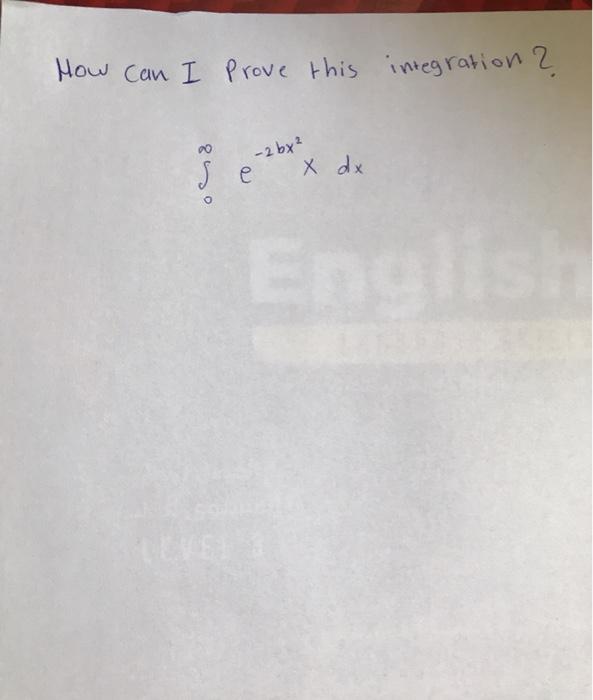 How can I Prove this integration?
∞
∫ e^{-2bx²} x dx
0
English
LEVEL 3